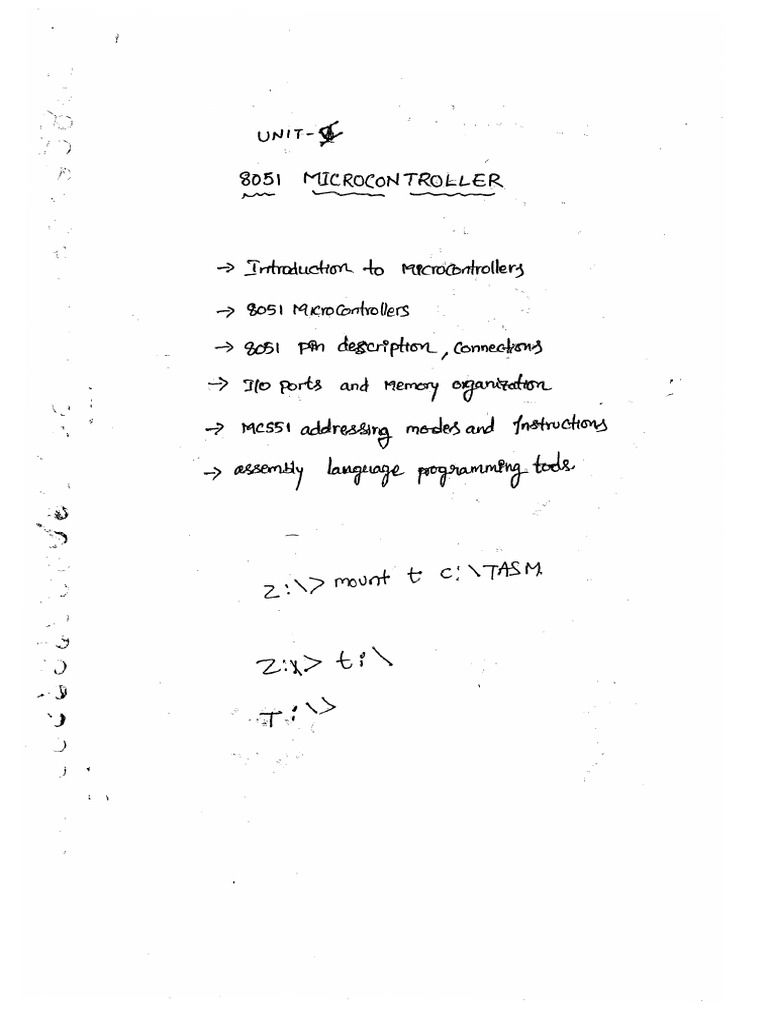 UNIT-
8051 MICROCONTROLLER
→ Introduction to Microcontrollers
→ 8051 Microcontrollers
→ 8051 pin description, connections
→ I/O ports and Memory organization
→ MCS51 addressing modes and Instructions
→ assembly language programming tools.
Z:\> mount t c:\TASM.
Z:\> t:\
T:\>